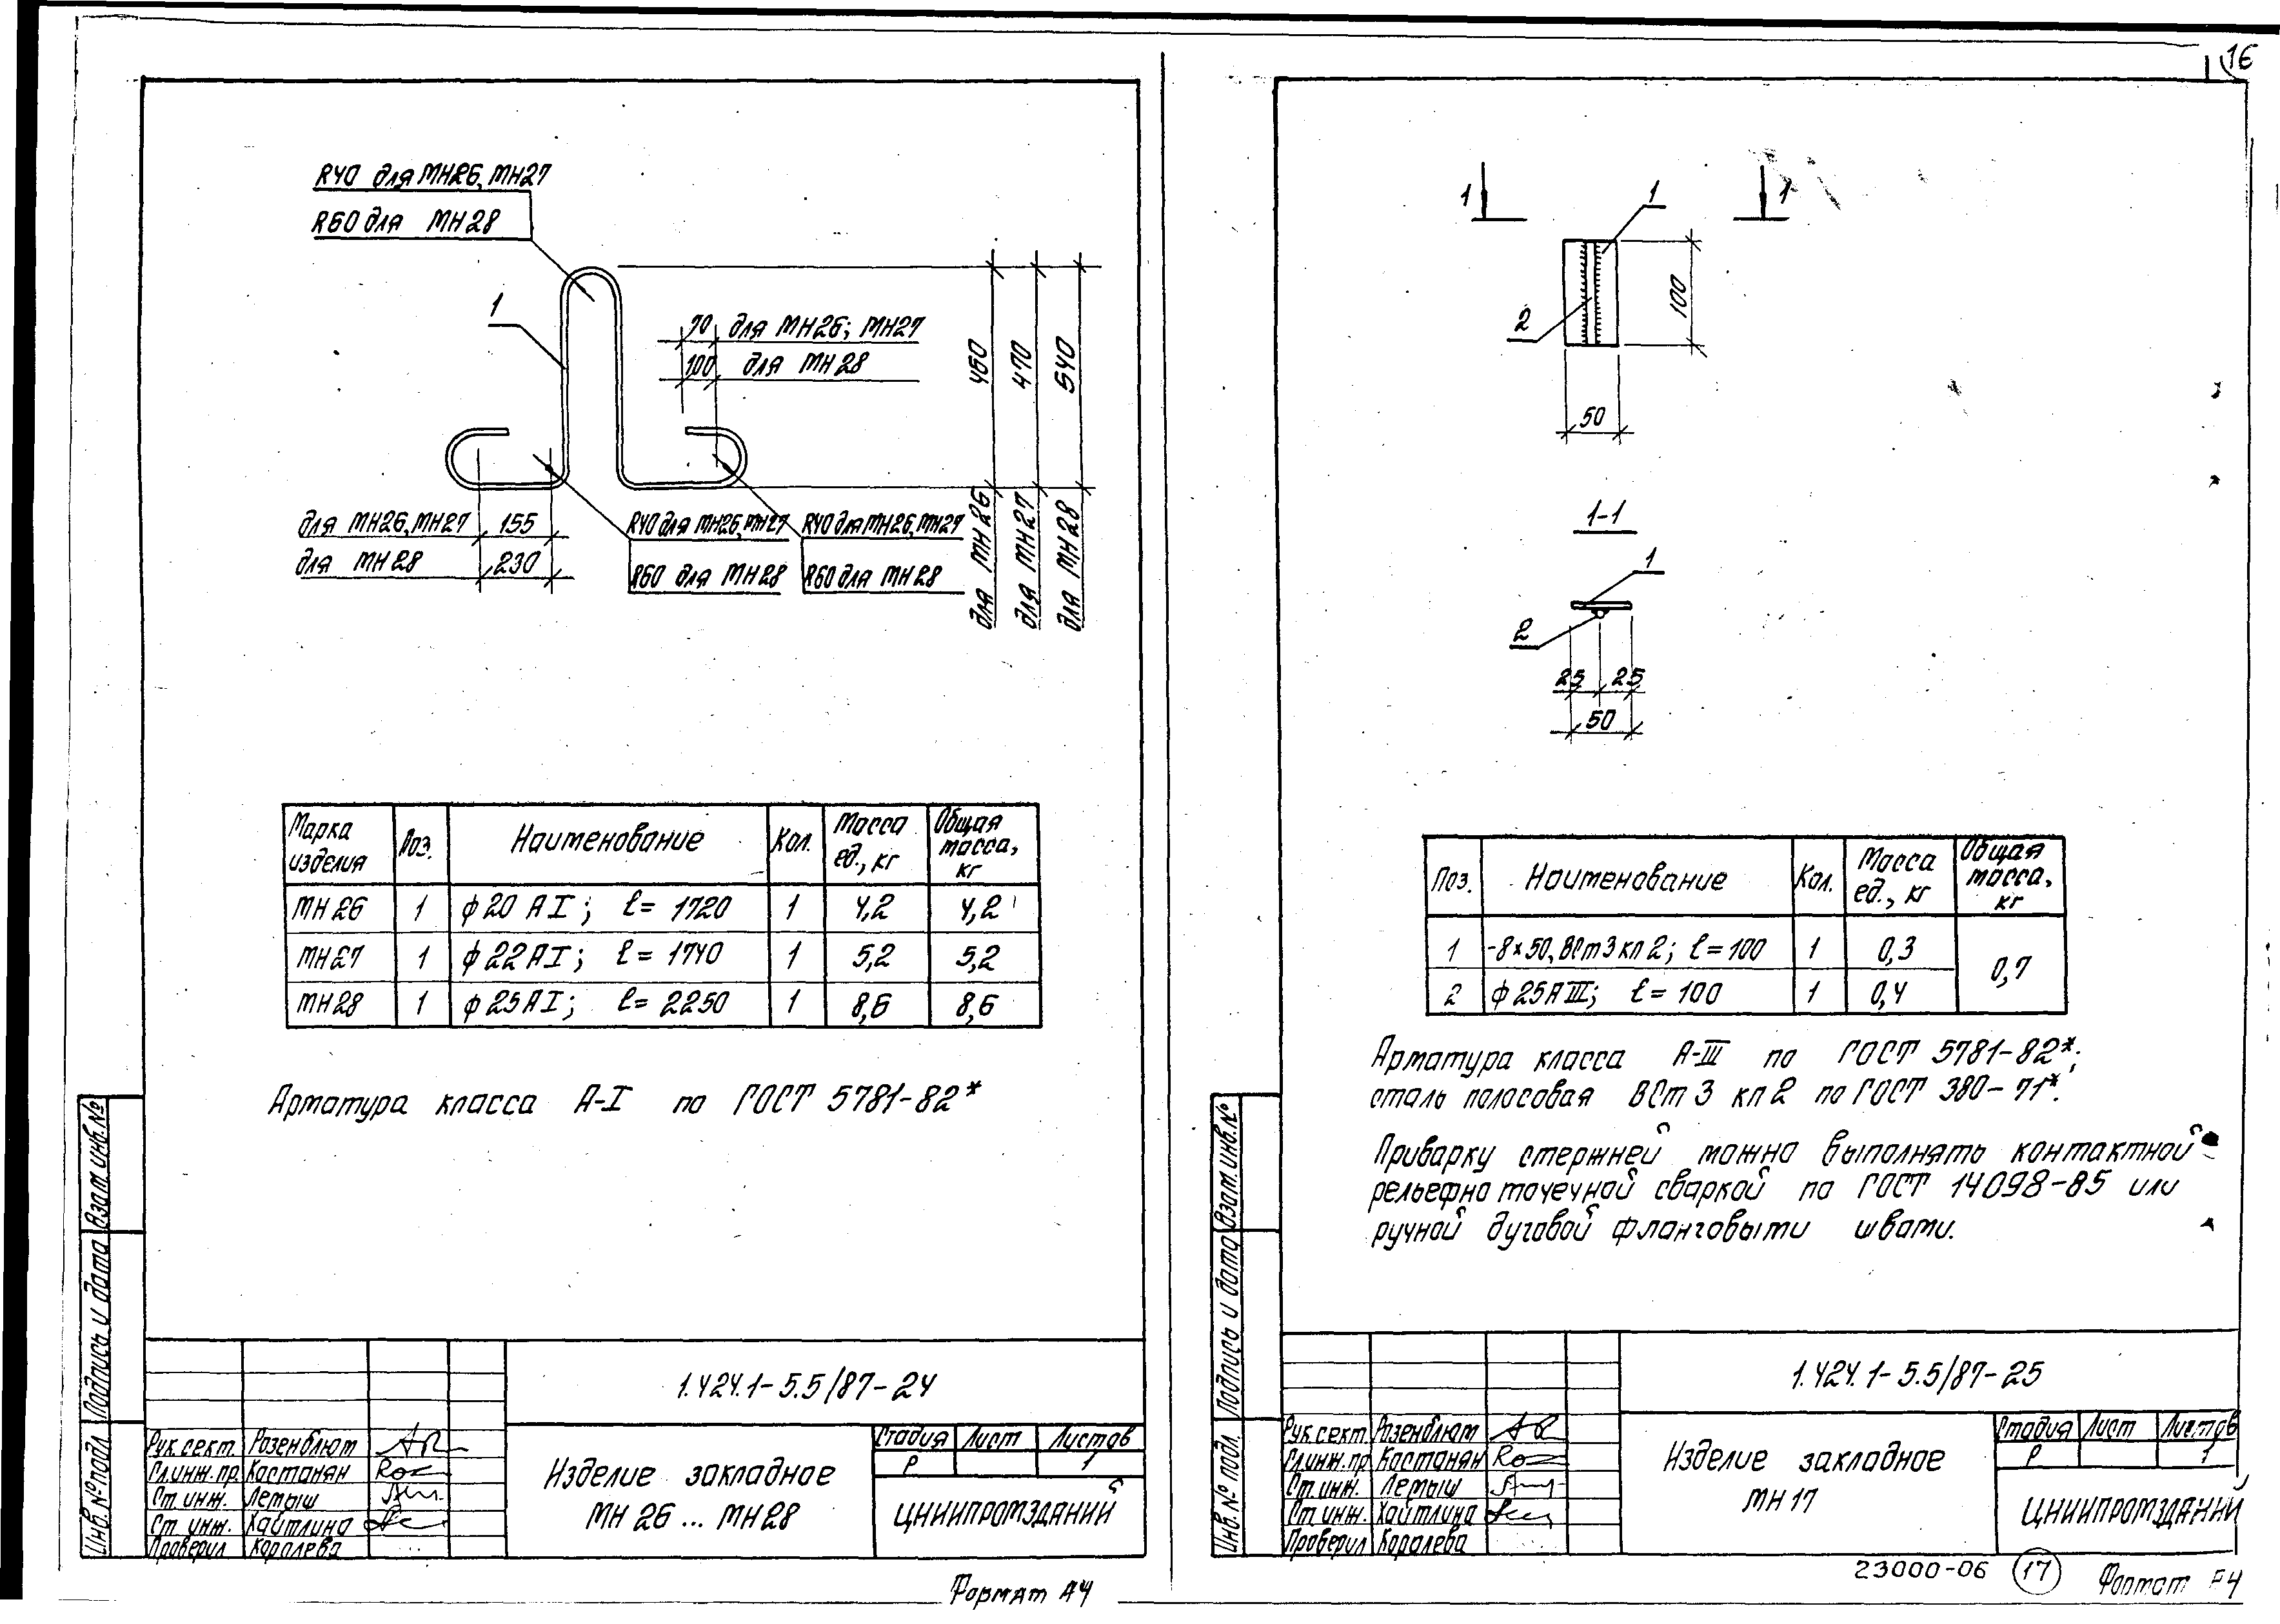 16
R40 для МН26, МН27
R60 для МН28
1
70 для МН26; МН27
100 для МН28
460
470
540
для МН26, МН27 155
для МН28 230
R40 для МН26, МН27
R60 для МН28
R40 для МН26, МН27
R60 для МН28
для МН26
для МН27
для МН28
Марка изделия Поз. Наименование Кол. Масса ед., кг Общая масса, кг
МН26 1 ф20 АI; ℓ= 1720 1 4,2 4,2
МН27 1 ф22АI; ℓ= 1740 1 5,2 5,2
МН28 1 ф25АI; ℓ= 2250 1 8,6 8,6
Арматура класса А-I по ГОСТ 5781-82*
Взам.инв.№
Подпись и дата
Инв.№подл.
1.424.1-5.5/87-24
Рук.сект. Розенблюм
Гл.инж.пр. Кастанян
Ст.инж. Лемыш
Ст.инж. Хайтлина
Проверил Королева
Изделие закладное
МН26...МН28
Стадия Лист Листов
Р 1
ЦНИИПРОМЗДАНИЙ
Формат А4
1 1
1
2
100
50
1-1
1
2
25 25
50
Поз. Наименование Кол. Масса ед., кг Общая масса, кг
1 -8×50, ВСт3кп2; ℓ=100 1 0,3 0,7
2 ф25АIII; ℓ= 100 1 0,4
Арматура класса А-III по ГОСТ 5781-82*;
сталь полосовая ВСт3кп2 по ГОСТ 380-71*.
Приварку стержней можно выполнять контактной
рельефно точечной сваркой по ГОСТ 14098-85 или
ручной дуговой фланговыми швами.
Взам.инв.№
Подпись и дата
Инв.№ подл.
1.424.1-5.5/87-25
Рук.сект. Розенблюм
Гл.инж.пр. Кастанян
Ст.инж. Лемыш
Ст.инж. Хайтлина
Проверил Королева
Изделие закладное
МН17
Стадия Лист Листов
Р 1
ЦНИИПРОМЗДАНИЙ
23000-06 17 Формат А4